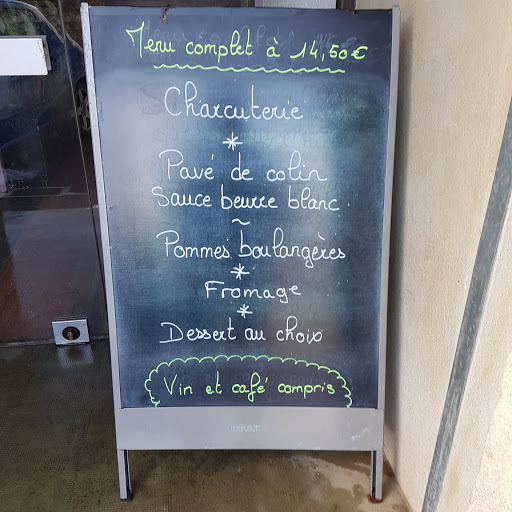 Menu complet à 14,50€
Charcuterie
*
Pavé de colin
Sauce beurre blanc
~
Pommes boulangères
*
Fromage
*
Dessert au choix
Vin et café compris